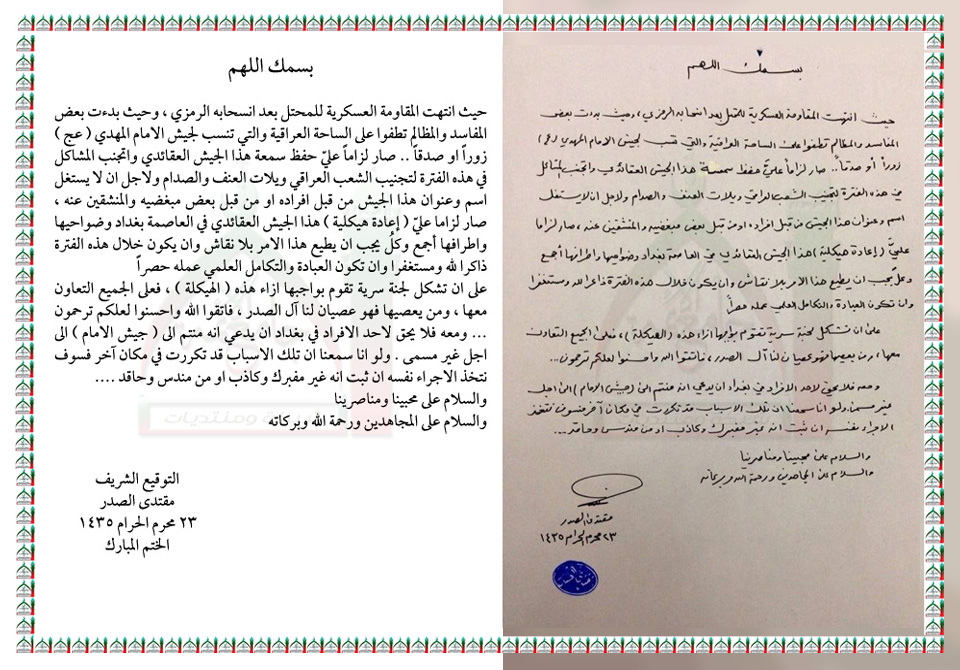 بسمك اللهم
حيث انتهت المقاومة العسكرية للمحتل بعد انسحابه الرمزي ، وحيث بدءت بعض
المفاسد والمظالم تطفوا على الساحة العراقية والتي تنسب لجيش الامام المهدي ( عج )
زوراً او صدقاً .. صار لزاماً عليّ حفظ سمعة هذا الجيش العقائدي واتجنب المشاكل
في هذه الفترة لتجنيب الشعب العراقي ويلات العنف والصدام ولاجل ان لا يستغل
اسم وعنوان هذا الجيش من قبل افراده او من قبل بعض مبغضيه والمنشقين عنه ،
صار لزاما عليّ ( إعادة هيكلية ) هذا الجيش العقائدي في العاصمة بغداد وضواحيها
واطرافها أجمع وكلٌ يجب ان يطيع هذا الامر بلا نقاش وان يكون خلال هذه الفترة
ذاكرا لله ومستغفرا وان تكون العبادة والتكامل العلمي عمله حصراً
على ان تشكل لجنة سرية تقوم بواجبها ازاء هذه ( الهيكلة ) ، فعلى الجميع التعاون
معها ، ومن يعصيها فهو عصيان لنا آل الصدر ، فاتقوا الله واحسنوا لعلكم ترحمون
... ومعه فلا يحق لاحد الافراد في بغداد ان يدعي انه منتم الى ( جيش الامام ) الى
اجل غير مسمى . ولو انا سمعنا ان تلك الاسباب قد تكررت في مكان آخر فسوف
نتخذ الاجراء نفسه ان ثبت انه غير مفبرك وكاذب او من مندس وحاقد ....
والسلام على محبينا ومناصرينا
والسلام على المجاهدين ورحمة الله وبركاته
التوقيع الشريف
مقتدى الصدر
٢٣ محرم الحرام ١٤٣٥
الختم المبارك
بسمك اللهم
حيث انتهت المقاومة العسكرية للمحتل بعد انسحابه الرمزي ، وحيث بدءت بعض
المفاسد والمظالم تطفوا على الساحة العراقية والتي تنسب لجيش الامام المهدي (عج)
زوراً أو صدقاً.. صار لزاماً عليّ حفظ سمعة هذا الجيش العقائدي واتجنب المشاكل
في هذه الفترة لتجنيب الشعب العراقي ويلات العنف والصدام ولاجل ان لا يستغل
اسم وعنوان هذا الجيش من قبل افراده او من قبل بعض مبغضيه والمنشقين عنه ، صار لزاما
عليّ ( إعادة هيكلية ) هذا الجيش العقائدي في العاصمة بغداد وضواحيها واطرافها أجمع
وكلٌ يجب ان يطيع هذا الامر بلا نقاش وان يكون خلال هذه الفترة ذاكرا لله ومستغفرا
وان تكون العبادة والتكامل العلمي عمله حصراً
على ان تشكل لجنة سرية تقوم بواجبها ازاء هذه ( الهيكلة ) ، فعلى الجميع التعاون
معها ، ومن يعصيها فهو عصيان لنا آل الصدر ، فاتقوا الله واحسنوا لعلكم ترحمون ...
ومعه فلا يحق لاحد الافراد في بغداد ان يدعي انه منتم الى ( جيش الامام ) الى اجل
غير مسمى. ولو انا سمعنا ان تلك الاسباب قد تكررت في مكان آخر فسوف نتخذ
الاجراء نفسه ان ثبت انه غير مفبرك وكاذب او من مندس وحاقد ...
والسلام على محبينا ومناصرينا
والسلام على المجاهدين ورحمة الله وبركاته
مقتدى الصدر
٢٣ محرم الحرام ١٤٣٥